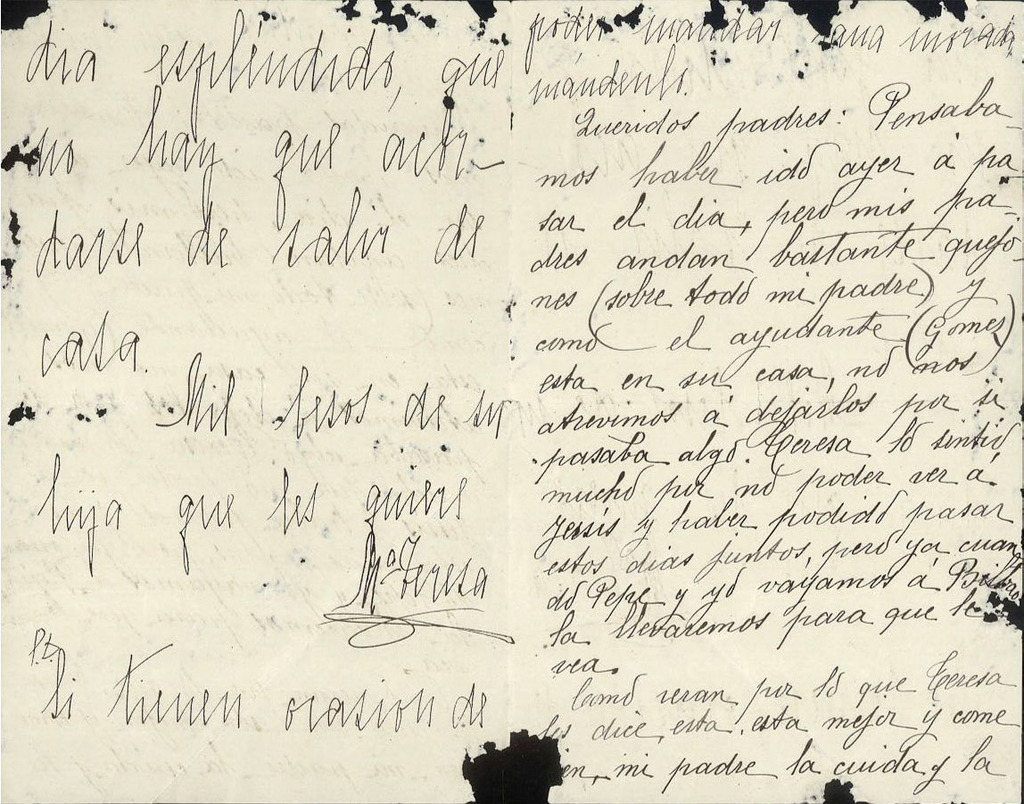 dia espléndido, que
no hay que acor-
darse de salir de
casa.
Mil besos de su
hija que les quiere
Mª Teresa
P.D.
Si tienen ocasion de
poder mandar lana morada
mándenlo.
Queridos padres: Pensaba-
mos haber idó ayer á pa-
sar el dia, peró mis pa-
dres andan bastante quejo-
nes (sobre todó mi padre) y
comó el ayudante (Gomez)
esta en su casa, nó nos
atrevimos á dejarlos por si
pasaba algó. Teresa ló sintió
muchó por nó poder ver á
Jesús y haber podidó pasar
estos dias juntos, peró ya cuan-
dó Pepe y yó vayamos á
la llevaremos para que le
vea.
Comó veran por ló que Teresa
les dice, esta, esta mejor y come
bien, mi padre la cuida y la